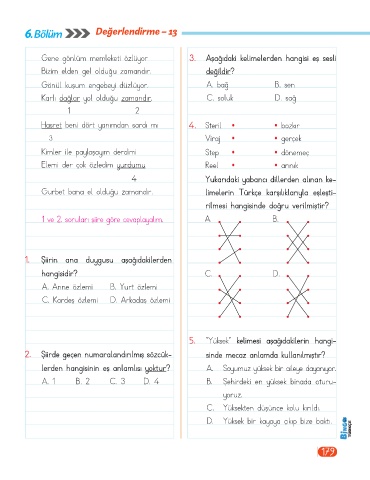 6.Bölüm Değerlendirme – 13
Gene gönlüm memleketi özlüyor
Bizim elden gel olduğu zamandır.
Gönül kuşum engebeyi düzlüyor.
Karlı dağlar yol olduğu zamandır.
1 2
Hasret beni dört yanımdan sardı mı
3
Kimler ile paylaşayım derdimi
Elemi der çok özledim yurdumu
4
Gurbet bana el olduğu zamandır.
1 ve 2. soruları şiire göre cevaplayalım.
1. Şiirin ana duygusu aşağıdakilerden
hangisidir?
A. Anne özlemi B. Yurt özlemi
C. Kardeş özlemi D. Arkadaş özlemi
2. Şiirde geçen numaralandırılmış sözcük-
lerden hangisinin eş anlamlısı yoktur?
A. 1 B. 2 C. 3 D. 4
3. Aşağıdaki kelimelerden hangisi eş sesli
değildir?
A. bağ B. sen
C. soluk D. sağ
4. Steril • • bozkır
Viraj • • gerçek
Step • • dönemeç
Reel • • arınık
Yukarıdaki yabancı dillerden alınan ke-
limelerin Türkçe karşılıklarıyla eşleşti-
rilmesi hangisinde doğru verilmiştir?
A. B.
C. D.
5. "Yüksek" kelimesi aşağıdakilerin hangi-
sinde mecaz anlamda kullanılmıştır?
A. Soyumuz yüksek bir aileye dayanıyor.
B. Şehirdeki en yüksek binada oturu-
yoruz.
C. Yüksekten düşünce kolu kırıldı.
D. Yüksek bir kayaya çıkıp bize baktı.
179